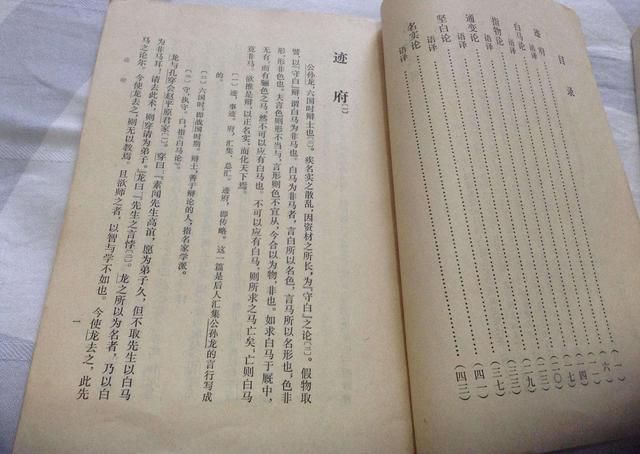 目录
迹府……(一)
语译……(六)
白马论
语译
指物论
语译
通变论
语译
坚白论
语译
名实论……(四一)
语译……(四三)
迹府〔一〕
公孙龙，六国时辩士也〔二〕。疾名实之散乱，因资材之所长，为“守白”之论〔三〕。假物取
譬，以“守白”辩，谓白马为非马也。白马为非马者，言白所以名色，言马所以名形也，色非
形，形非色也。夫言色则形不当与，言形则色不宜从，今合以为物，非也。如求白马于厩中，
无有，而有骊色之马，然不可以应有白马也。不可以应有白马，则所求之马亡矣；亡则白马
竟非马。欲推是辩，以正名实，而化天下焉。
〔一〕迹，事迹。府，汇集、总汇。迹府，即传略。这一篇是后人汇集公孙龙的言行写成
的。
〔二〕六国时，即战国时期。辩士，善于辩论的人，指名家学派。
〔三〕守，执守。白，指《白马论》。
龙与孔穿会赵平原君家〔一〕。穿曰：“素闻先生高谊，愿为弟子久，但不取先生以白马
为非马耳！请去此术，则穿请为弟子。”龙曰：“先生之言悖〔二〕。龙之所以为名者，乃以白
马之论尔。今使龙去之，则无以教焉。且欲师之者，以智与学不如也。今使龙去之，此先
迹府
一